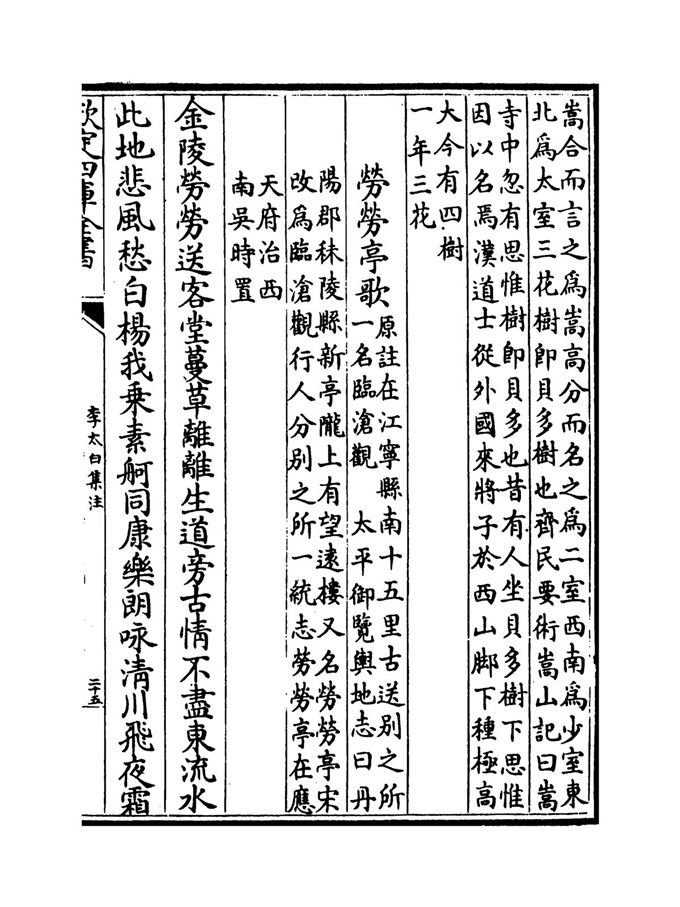 嵩合而言之爲嵩高分而名之爲二室西南爲少室東
北爲太室三花樹即貝多樹也齊民要術嵩山記曰嵩
寺中忽有思惟樹即貝多也昔有人坐貝多樹下思惟
因以名焉漢道士從外國來將子於西山脚下種極高
大今有四樹
一年三花
勞勞亭歌
原註在江寧縣南十五里古送別之所
一名臨滄觀 太平御覽輿地志曰丹
陽郡秣陵縣新亭隴上有望遠樓又名勞勞亭宋
改爲臨滄觀行人分別之所一統志勞勞亭在應
天府治西
南吳時置
金陵勞勞送客堂蔓草離離生道旁古情不盡東流水
此地悲風愁白楊我乗素舸同康樂朗咏清川飛夜霜
欽定四庫全書
李太白集注
二十五